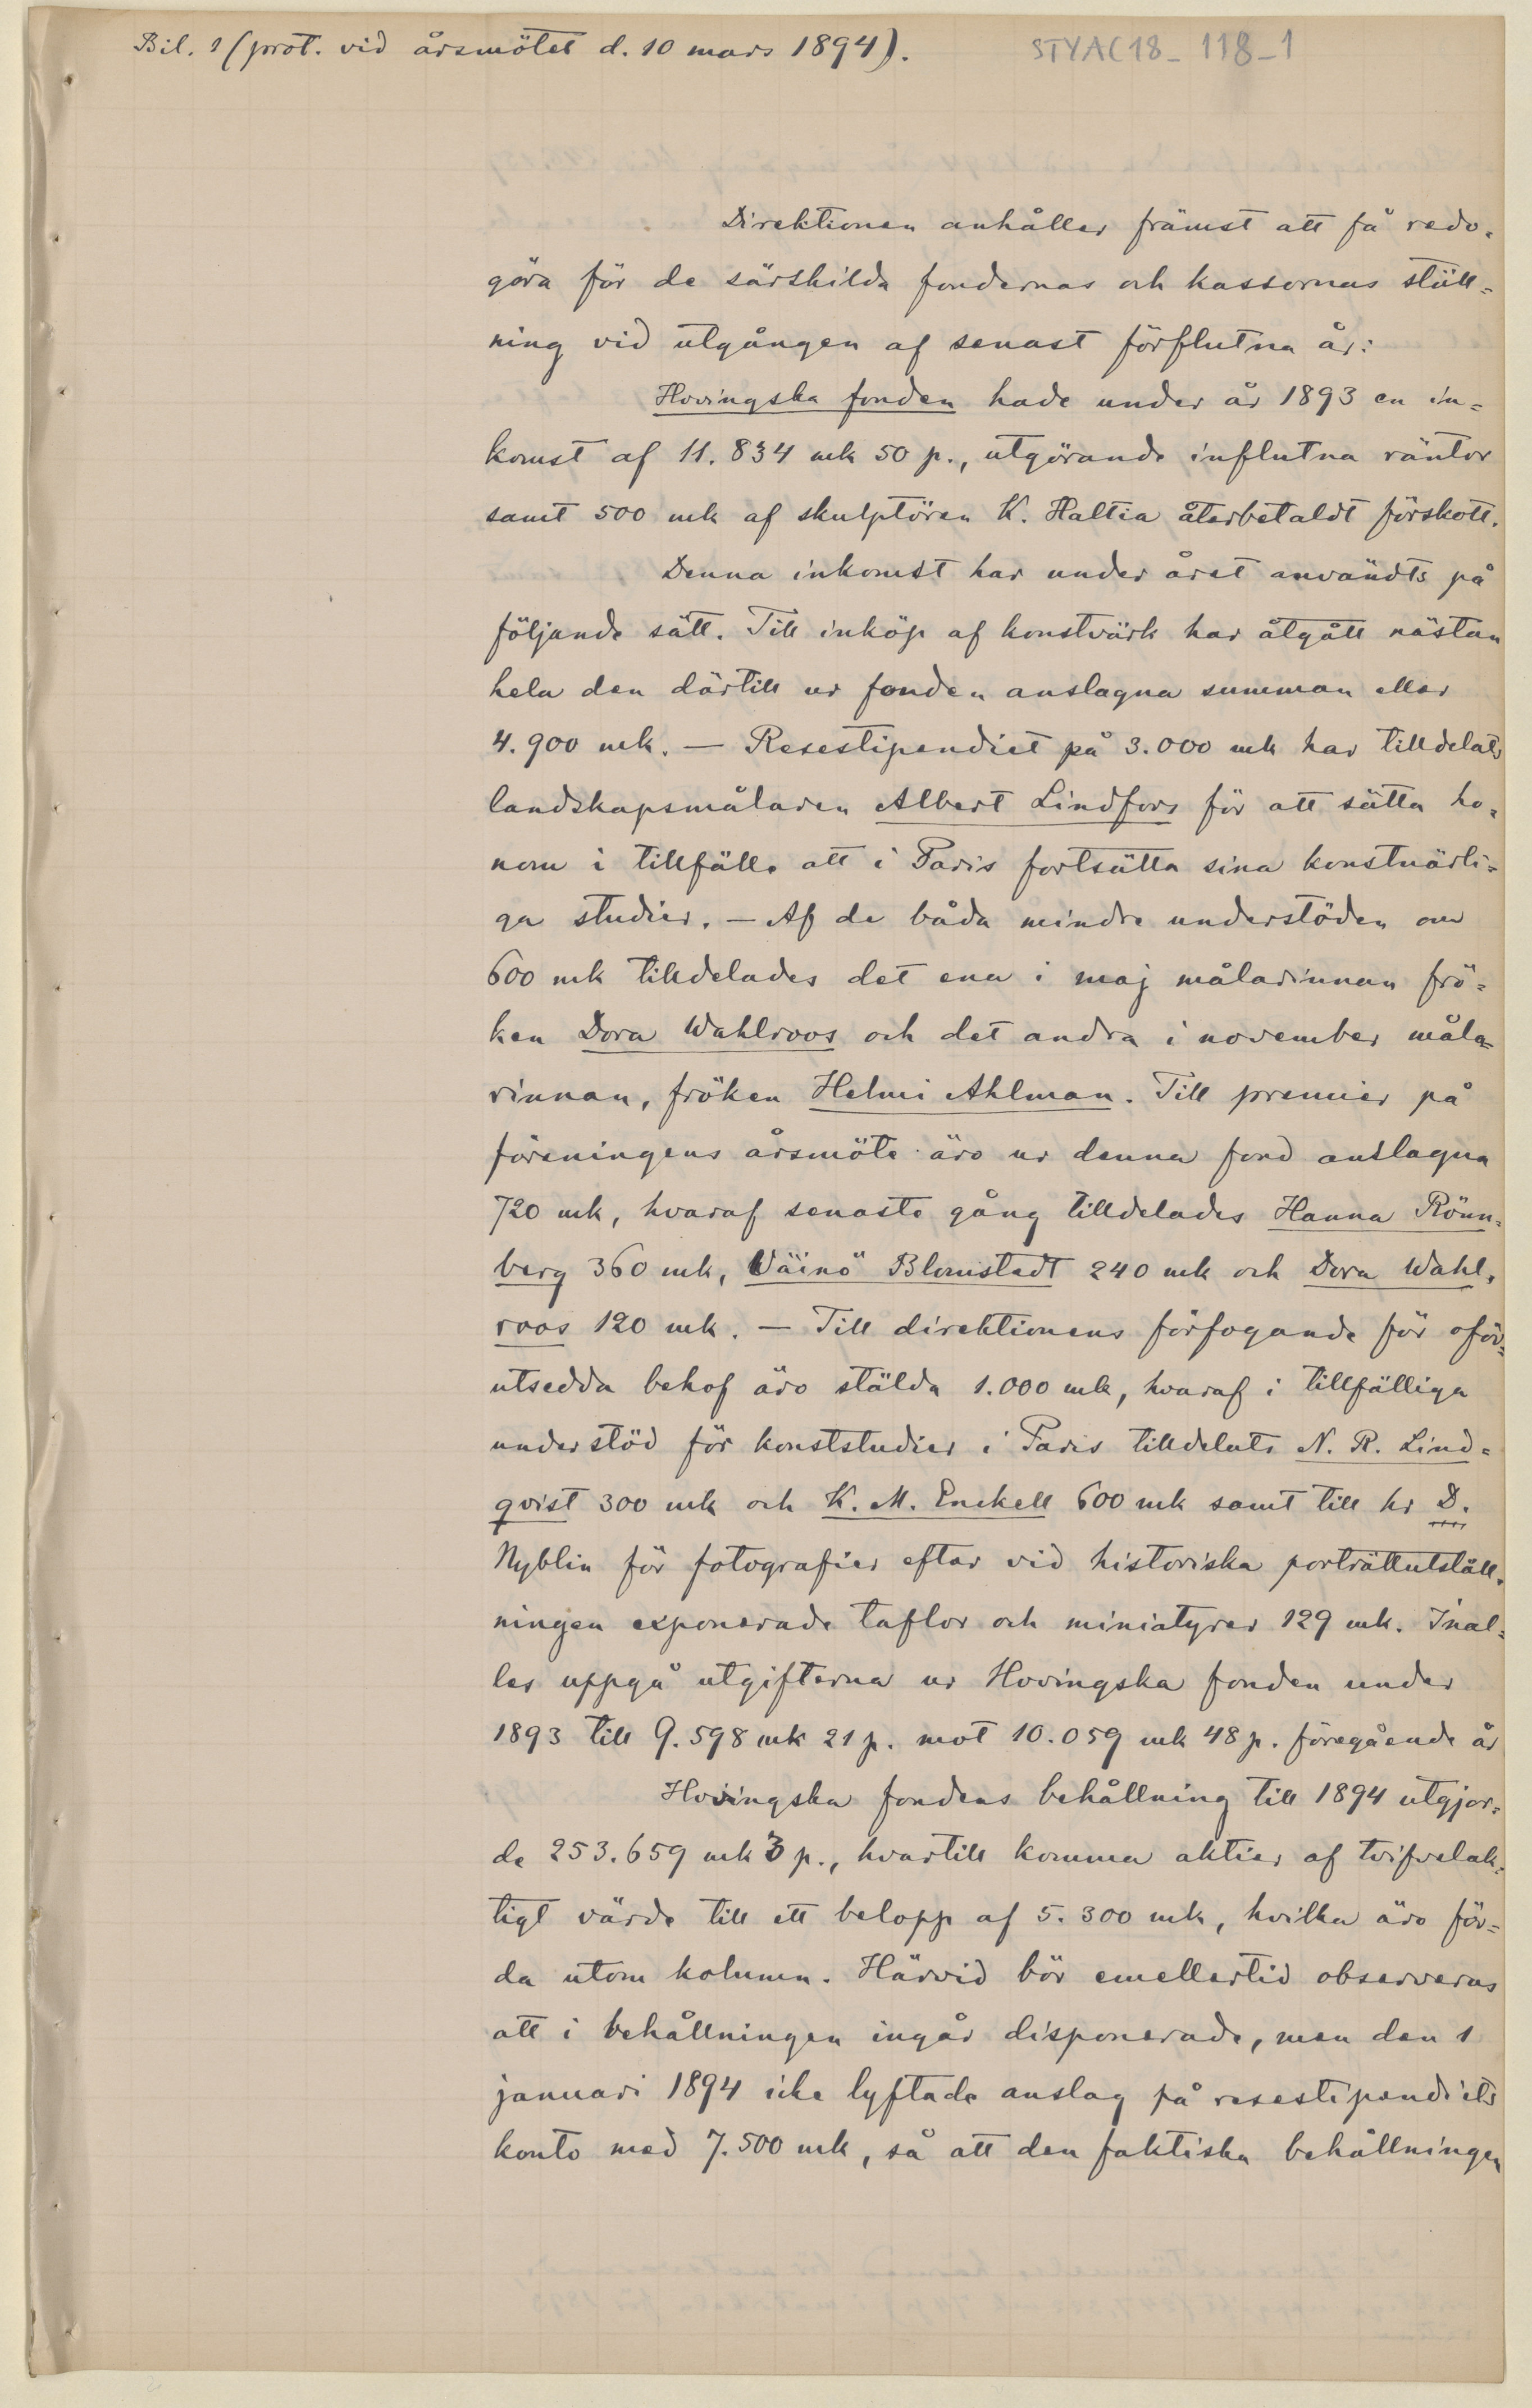 Bil. 1 (prot. vid årsmötet d. 10 mars 1894).
STYAC18_118_1
Direktionen anhåller främst att få redo-
göra för de särskilda fondernas och kassornas ställ=
ning vid utgången af senast förflutna år:
Hovingska fonden hade under år 1893 en in=
komst af 11.834 mk 50 p., utgörande influtna räntor
samt 500 mk af skulptören K. Haltia återbetaldt förskott.
Denna inkomst har under året användts på
följande sätt. Till inköp af konstvärk har åtgått nästan
hela den därtill ur fonden anslagna summan eller
4.900 mk. — Resestipendiet på 3.000 mk har tilldelats
landskapsmålaren Albert Lindfors för att sätta ho-
nom i tillfälle att i Paris fortsätta sina konstnärli=
ga studier. — Af de båda mindre understöden om
600 mk tilldelades det ena i maj målarinnan frö=
ken Dora Wahlroos och det andra i november måla=
rinnan, fröken Helmi Ahlman. Till premier på
föreningens årsmöte äro ur denna fond anslagna
720 mk, hvaraf senaste gång tilldelades Hanna Rönn=
berg 360 mk, Väinö Blomstedt 240 mk och Dora Wahl-
roos 120 mk. — Till direktionens förfogande för oför=
utsedda behof äro stälda 1.000 mk, hvaraf i tillfälliga
understöd för konststudier i Paris tilldelats N. R. Lind=
qvist 300 mk och K. M. Enckell 600 mk samt till hr D.
Nyblin för fotografier efter vid historiska porträttutställ-
ningen exponerade taflor och miniatyrer 129 mk. Inal=
les uppgå utgifterna ur Hovingska fonden under
1893 till 9.598 mk 21 p. mot 10.059 mk 48 p. föregående år
Hovingska fondens behållning till 1894 utgjor=
de 253.659 mk 3 p., hvartill komma aktier af tvifvelak=
tigt värde till ett belopp af 5.300 mk, hvilka äro för=
da utom kolumn. Härvid bör emellertid observeras
att i behållningen ingår disponerade, men den 1
januari 1894 icke lyftade anslag på resestipendiets
konto med 7.500 mk, så att den faktiska behållningen